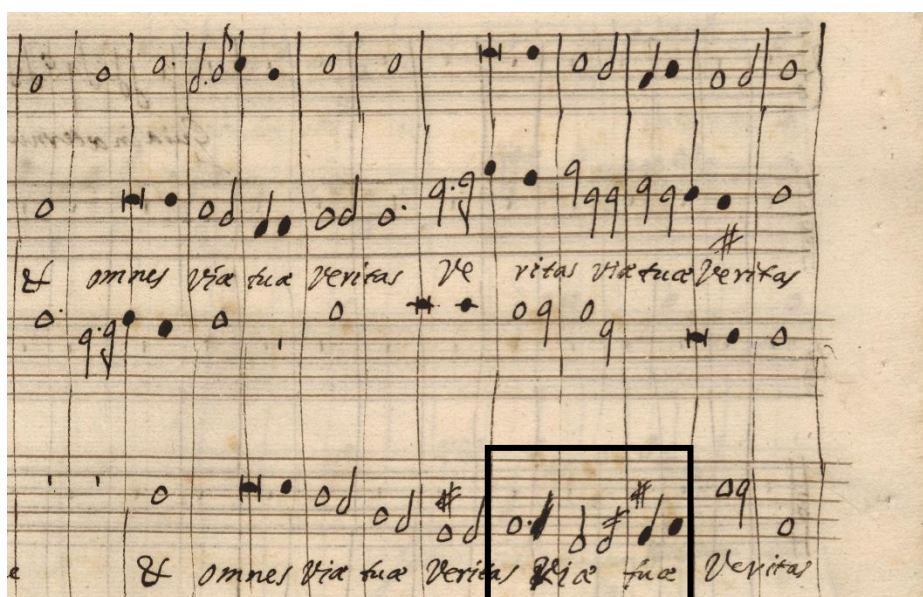 & omnes viæ tuæ Veritas Ve ritas viæ tuæ Veritas
& omnes Viæ tuæ Veritas Viæ tuæ Veritas